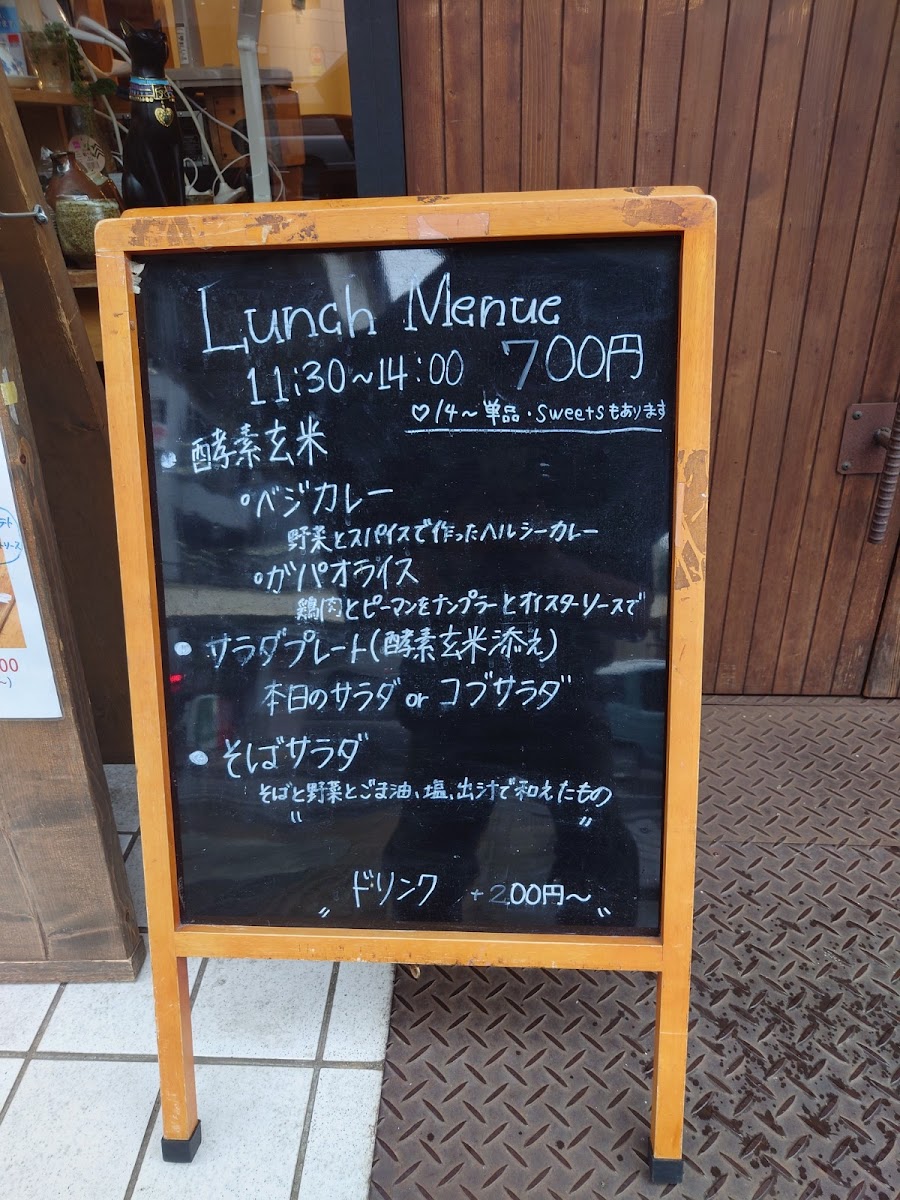 Lunch Menue
11:30~14:00 700円
♡14~単品・sweetsもあります
・酵素玄米
・ベジカレー
野菜とスパイスで作ったヘルシーカレー
・ガパオライス
鶏肉とピーマンをナンプラーとオイスターソースで
・サラダプレート(酵素玄米添え)
本日のサラダ or コブサラダ
・そばサラダ
そばと野菜とごま油、塩、出汁で和えたもの
〃 〃
〃 ドリンク +200円~ 〃
00
~)